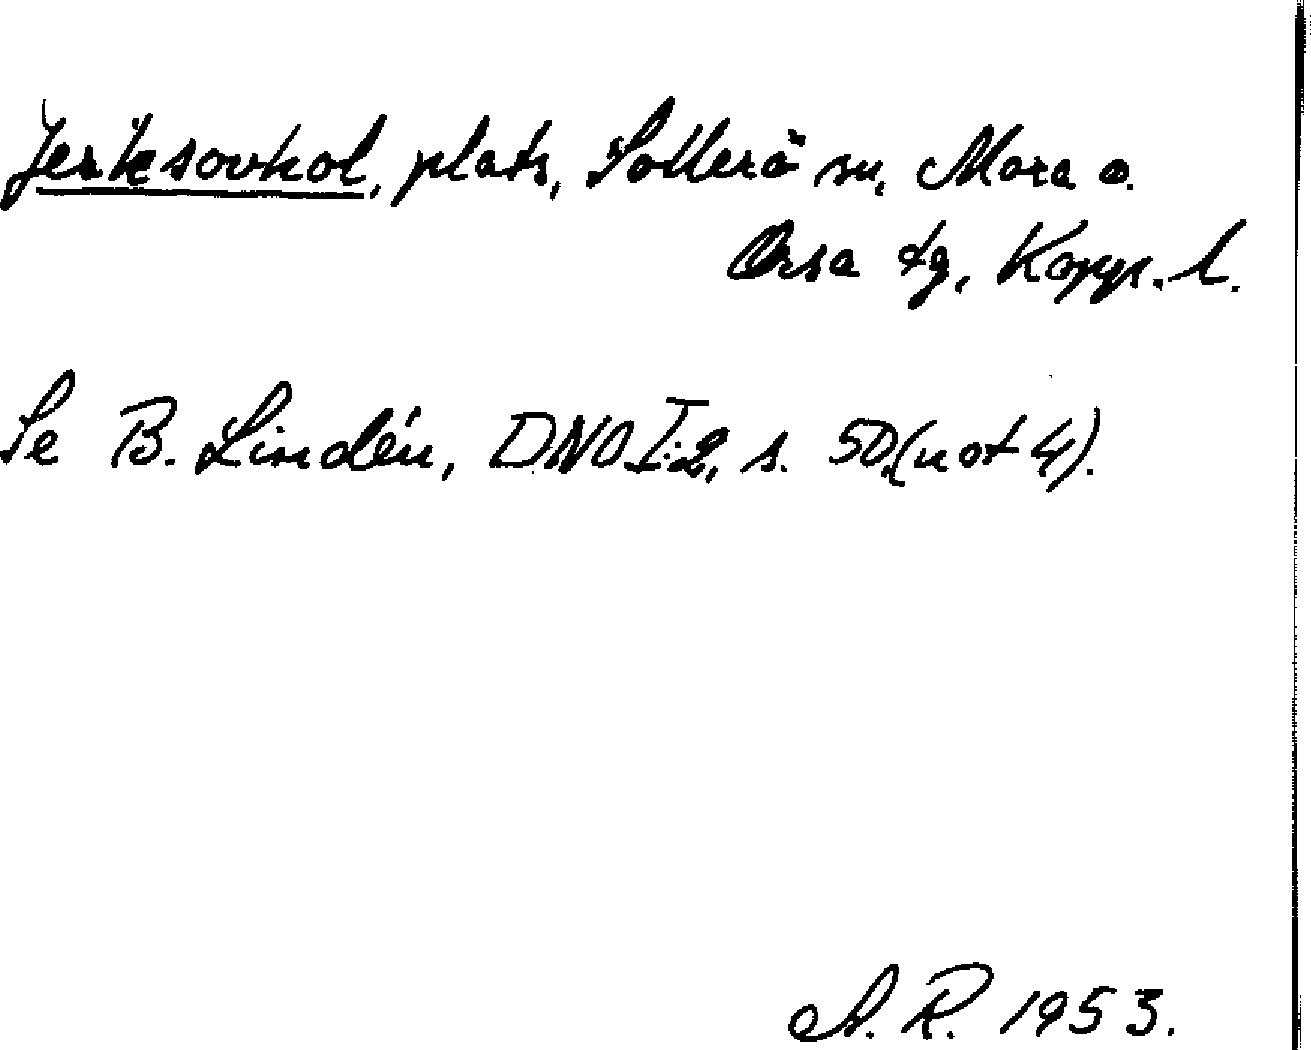 Jerksovhol, plats, Sollerö sn, Mora o.
Orsa tg, Kopp. l.
Se B. Lindén, DNO I:2, s. 50 (not 4).
A. R. 1953.